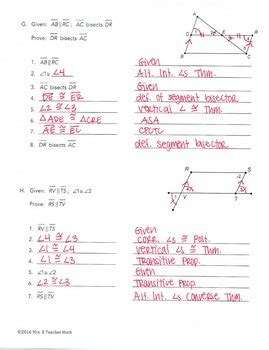 G. Given: AB∥RC; AC bisects DR
Prove: DR bisects AC
1. AB∥RC Given
2. ∠1≅∠4 Alt. Int. ∠s Thm.
3. AC bisects DR Given
4. DE ≅ ER def. of segment bisector
5. ∠2 ≅ ∠3 Vertical ∠ ≅ Thm.
6. △ADE ≅ △CRE ASA
7. AE ≅ EC CPCTC
8. DR bisects AC def. segment bisector
H. Given: RV∥TS; ∠1≅∠2
Prove: RS∥TV
1. RV∥TS Given
2. ∠4 ≅ ∠3 Corr. ∠s ≅ Post.
3. ∠1 ≅ ∠4 Vertical ∠s ≅ Thm.
4. ∠1 ≅ ∠3 Transitive Prop.
5. ∠1≅∠2 Given
6. ∠2 ≅ ∠3 Transitive Prop.
7. RS∥TV Alt. Int. ∠s Converse Thm.
©2016 Mrs. E Teaches Math